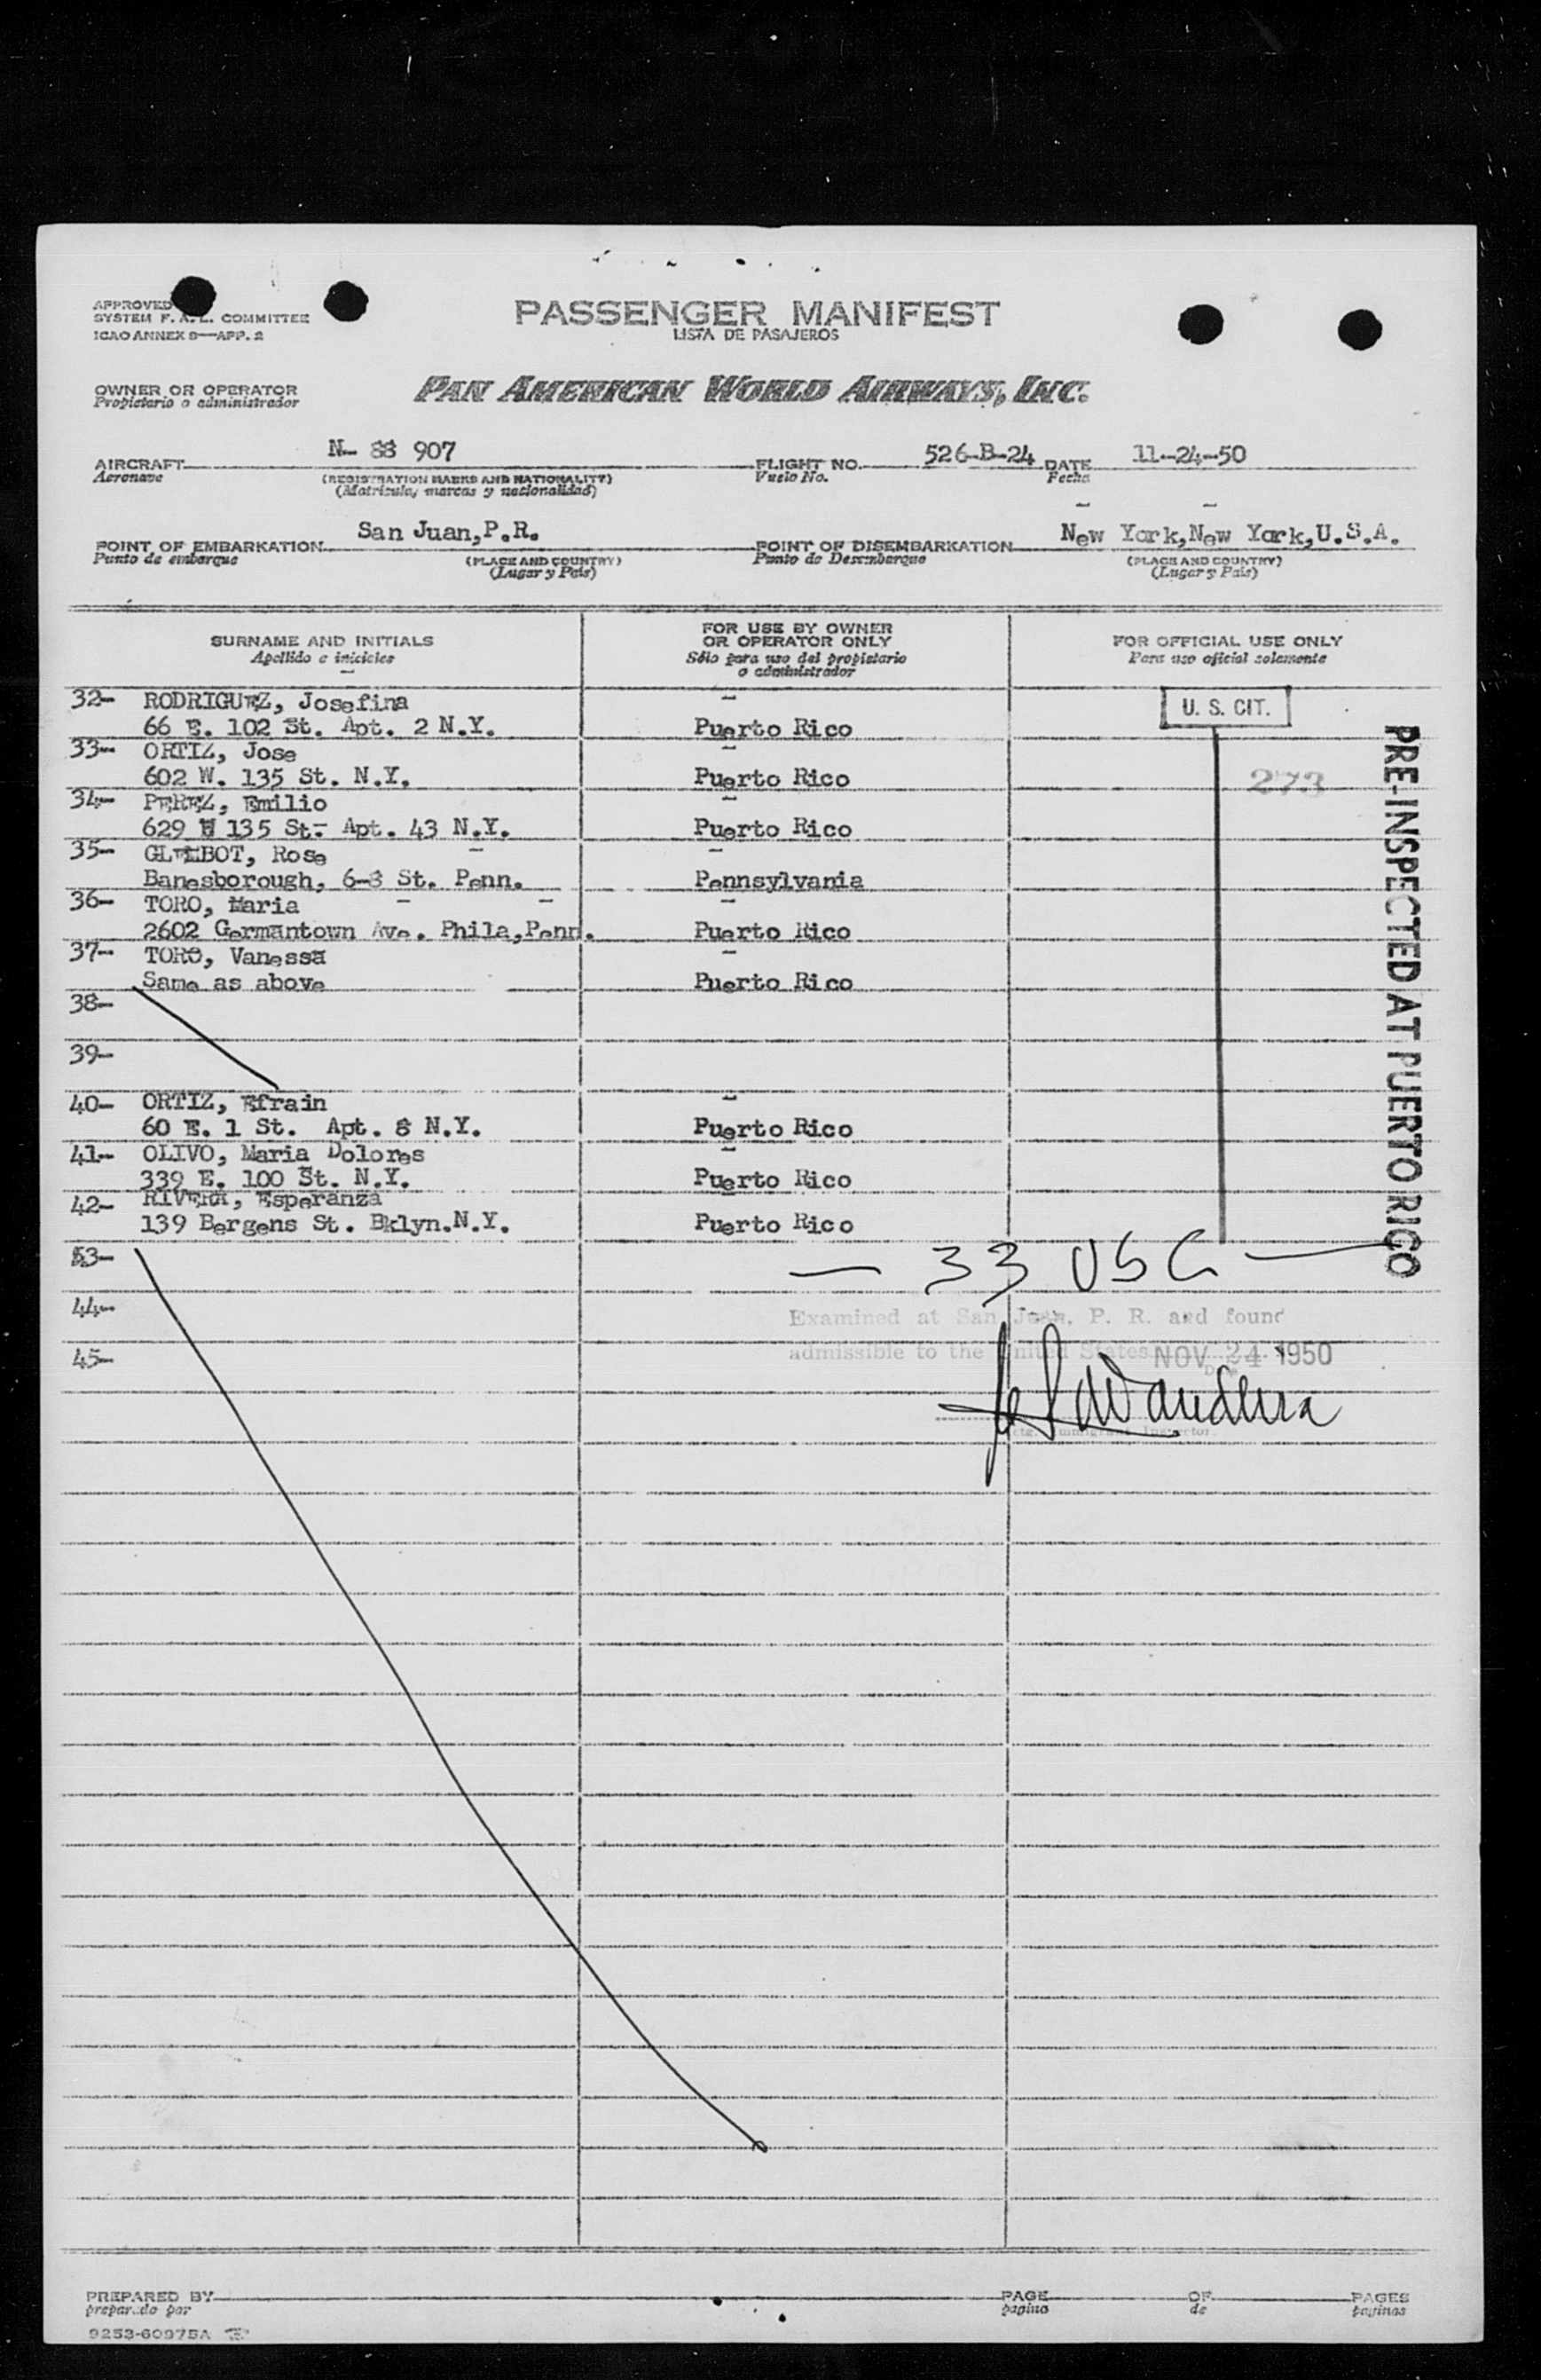 APPROVED
SYSTEM F. A. L. COMMITTEE
ICAO ANNEX 9—APP. 2
PASSENGER MANIFEST
LISTA DE PASAJEROS
OWNER OR OPERATOR
Propietario o administrador
PAN AMERICAN WORLD AIRWAYS, INC.
AIRCRAFT N- 88 907 FLIGHT NO. 526-B-24 DATE 11-24-50
Aeronave (REGISTRATION MARKS AND NATIONALITY) Vuelo No. Fecha
(Matricula, marcas y nacionalidad)
POINT OF EMBARKATION San Juan,P.R. POINT OF DISEMBARKATION New York,New York,U.S.A.
Punto de embarque (PLACE AND COUNTRY) Punto de Desembarque (PLACE AND COUNTRY)
(Lugar y País) (Lugar y País)
SURNAME AND INITIALS FOR USE BY OWNER OR OPERATOR ONLY FOR OFFICIAL USE ONLY
Apellido e iniciales Sólo para uso del propietario o administrador Para uso oficial solamente
32- RODRIGUEZ, Josefina U. S. CIT.
66 E. 102 St. Apt. 2 N.Y. Puerto Rico
33- ORTIZ, Jose
602 W. 135 St. N.Y. Puerto Rico 273
34- PEREZ, Emilio
629 W 135 St. Apt. 43 N.Y. Puerto Rico
35- Rose
Banesborough, 6-8 St. Penn. Pennsylvania
36- TORO, Maria
2602 Germantown Ave. Phila,Penn. Puerto Rico
37- TORO, Vanessa
Same as above Puerto Rico
38-
39-
40- ORTIZ, Efrain
60 E. 1 St. Apt. 8 N.Y. Puerto Rico
41- OLIVO, Maria Dolores
339 E. 100 St. N.Y. Puerto Rico
42- RIVERA, Esperanza
139 Bergens St. Bklyn.N.Y. Puerto Rico
PRE-INSPECTED AT PUERTO RICO
53-
— 33 USC —
44-
Examined at San Juan, P. R. and found
45-
admissible to the United States NOV 24 1950
Immigrant Inspector
PREPARED BY PAGE OF PAGES
preparado por pagina de paginas
9253-60975A